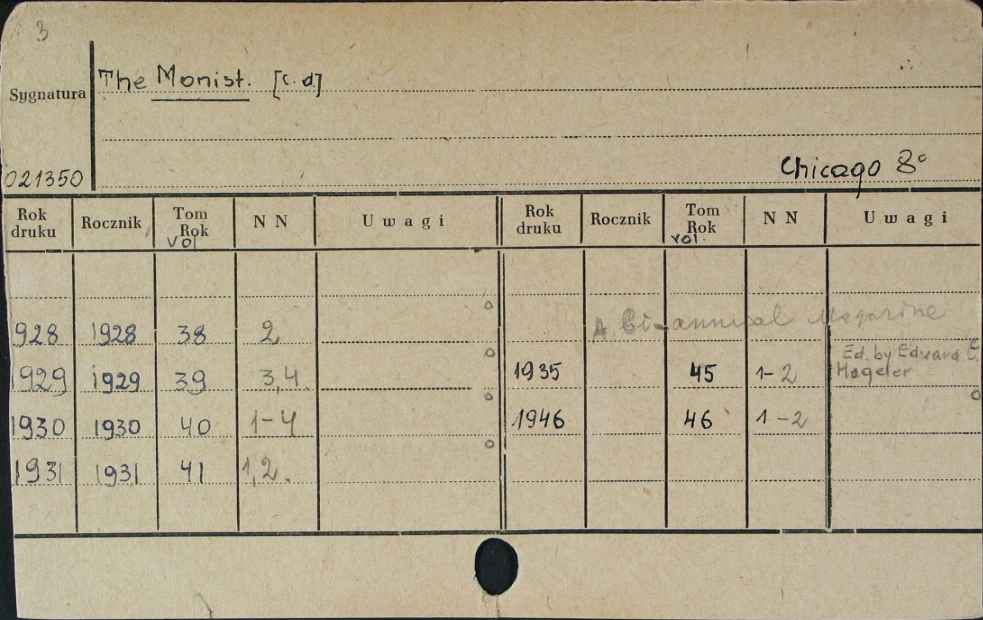 3
The Monist. [c.d.]
Sygnatura
021350
Chicago 8°
Rok druku Rocznik Tom Rok vol NN Uwagi Rok druku Rocznik Tom Rok vol. NN Uwagi
A Bi-annual Magazine
928 1928 38 2
Ed. by Edward C. Hegeler
1929 1929 39 3,4. 1935 45 1-2
1930 1930 40 1-4 1946 46 1-2
1931 1931 41 1,2.